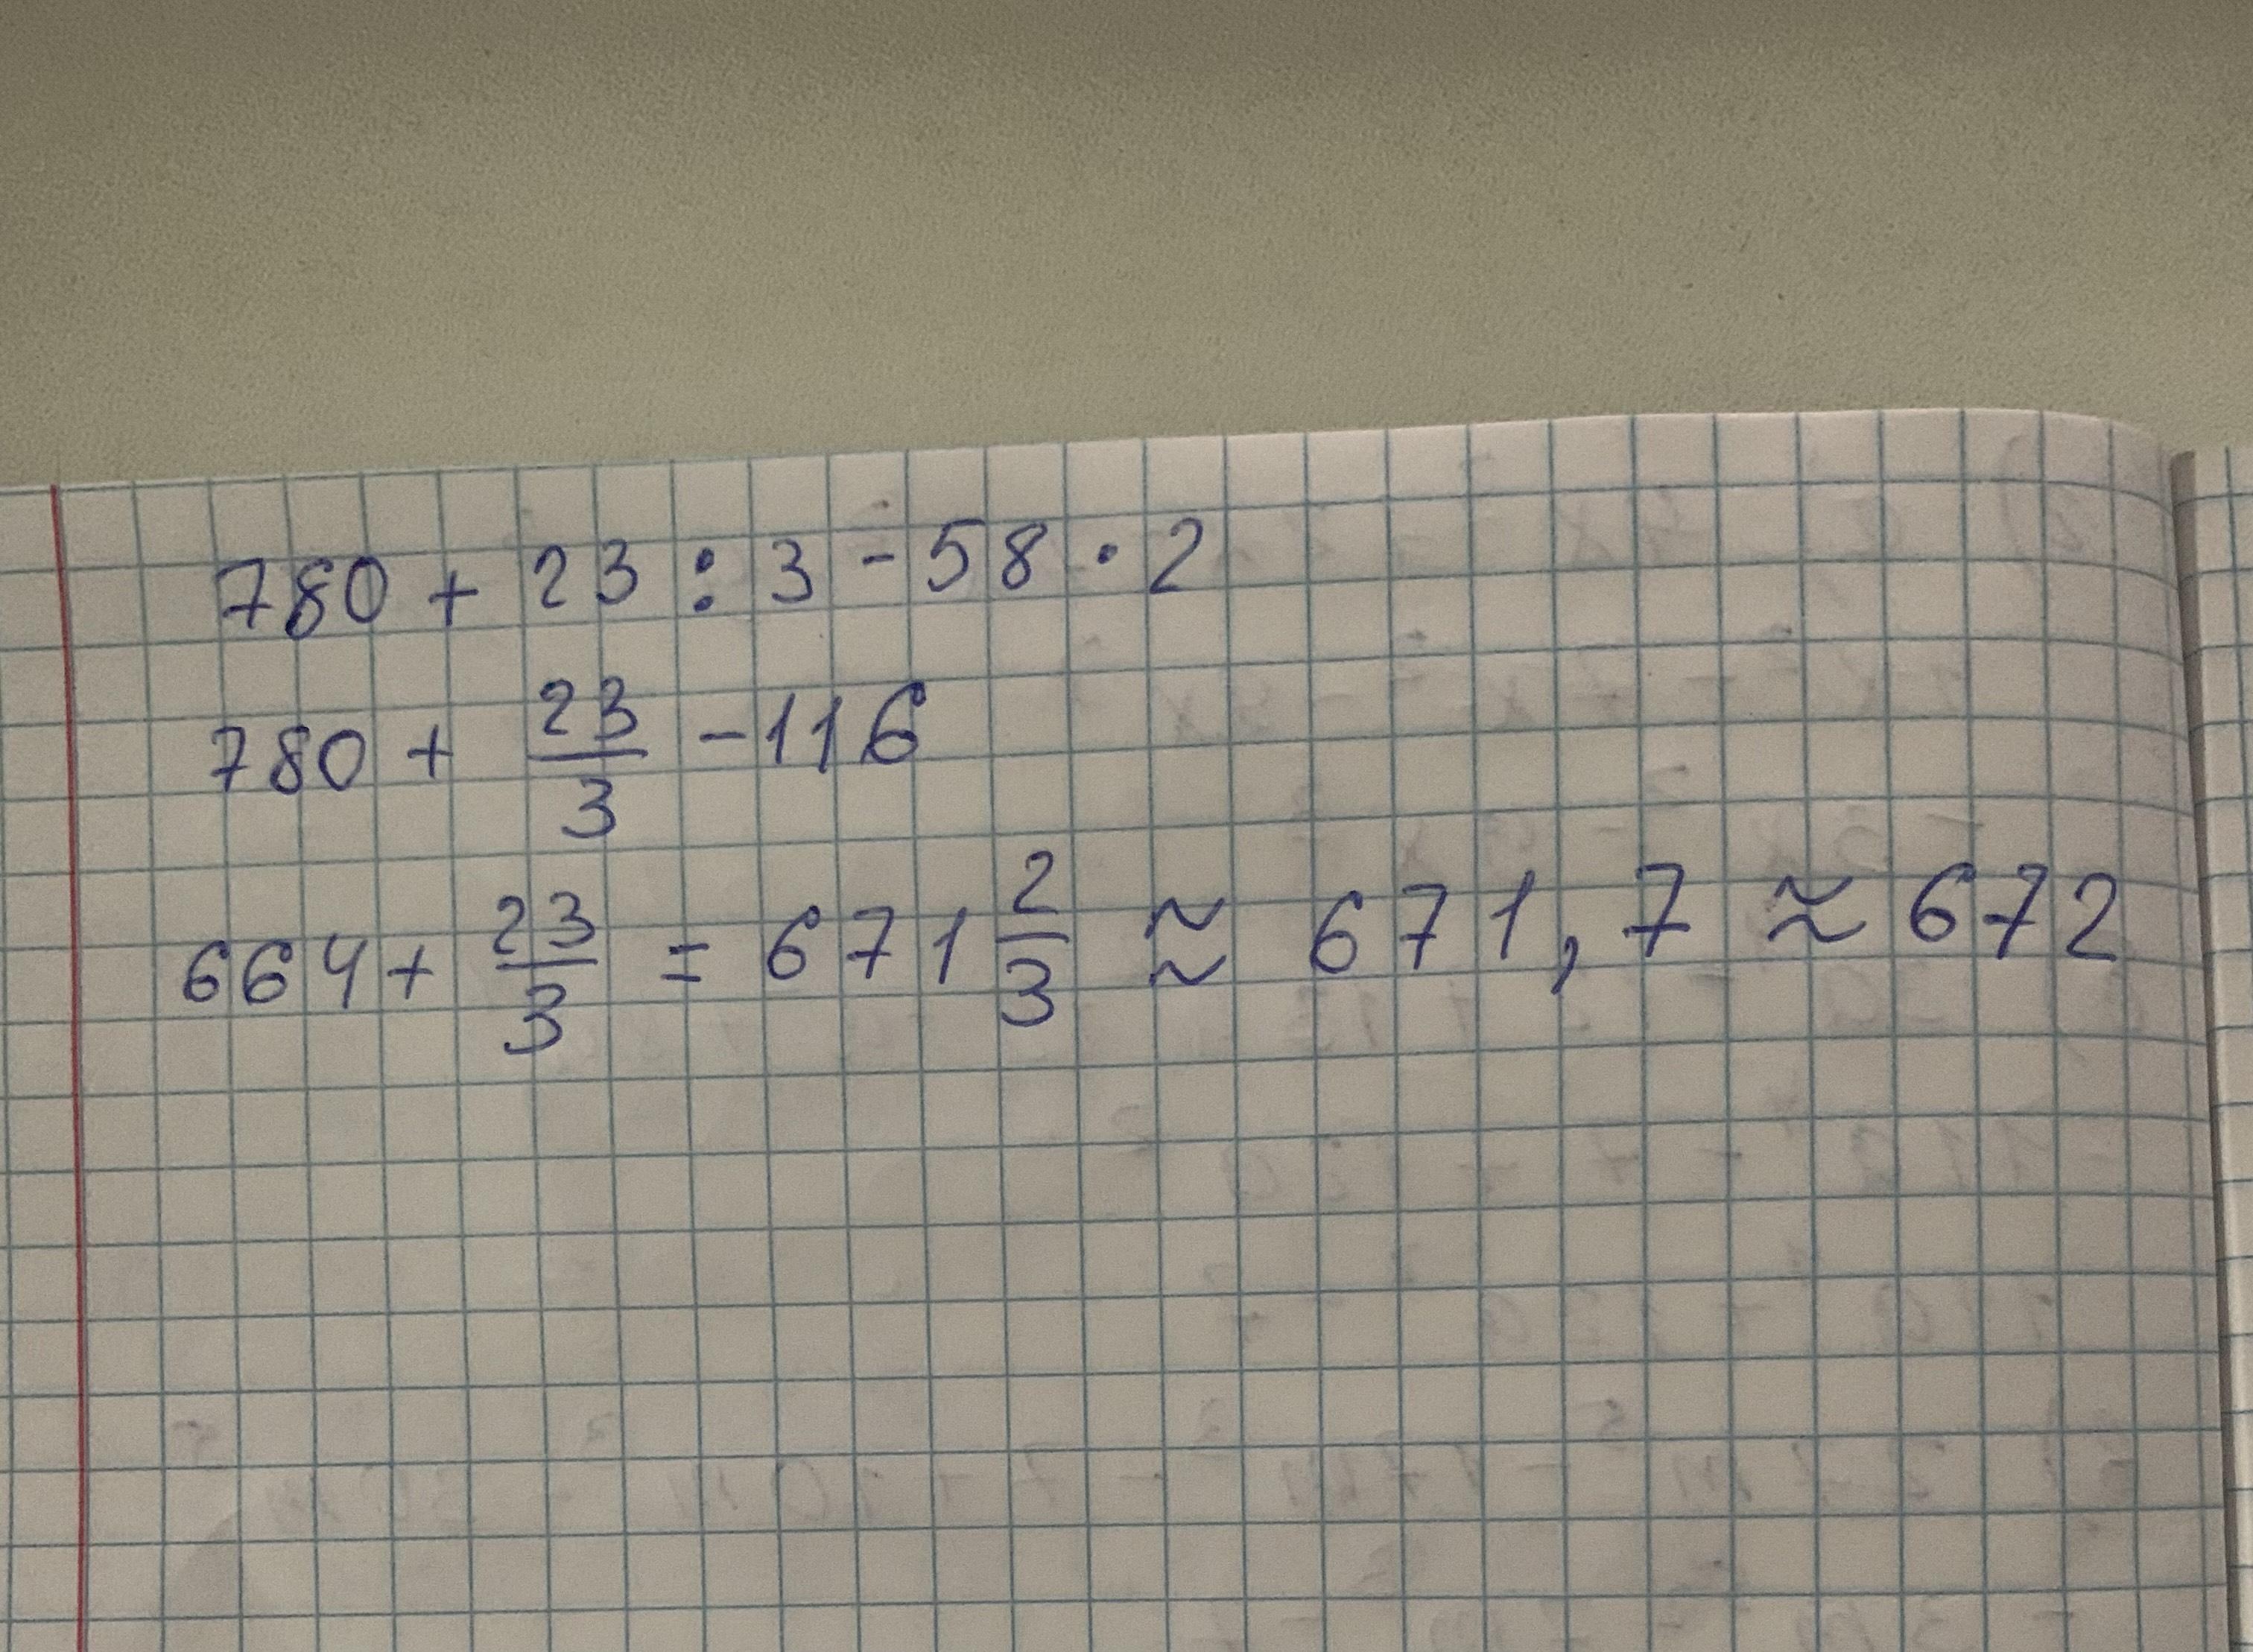 780 + 23 : 3 - 58 · 2
780 + 23/3 - 116
664 + 23/3 = 671 2/3 ≈ 671,7 ≈ 672